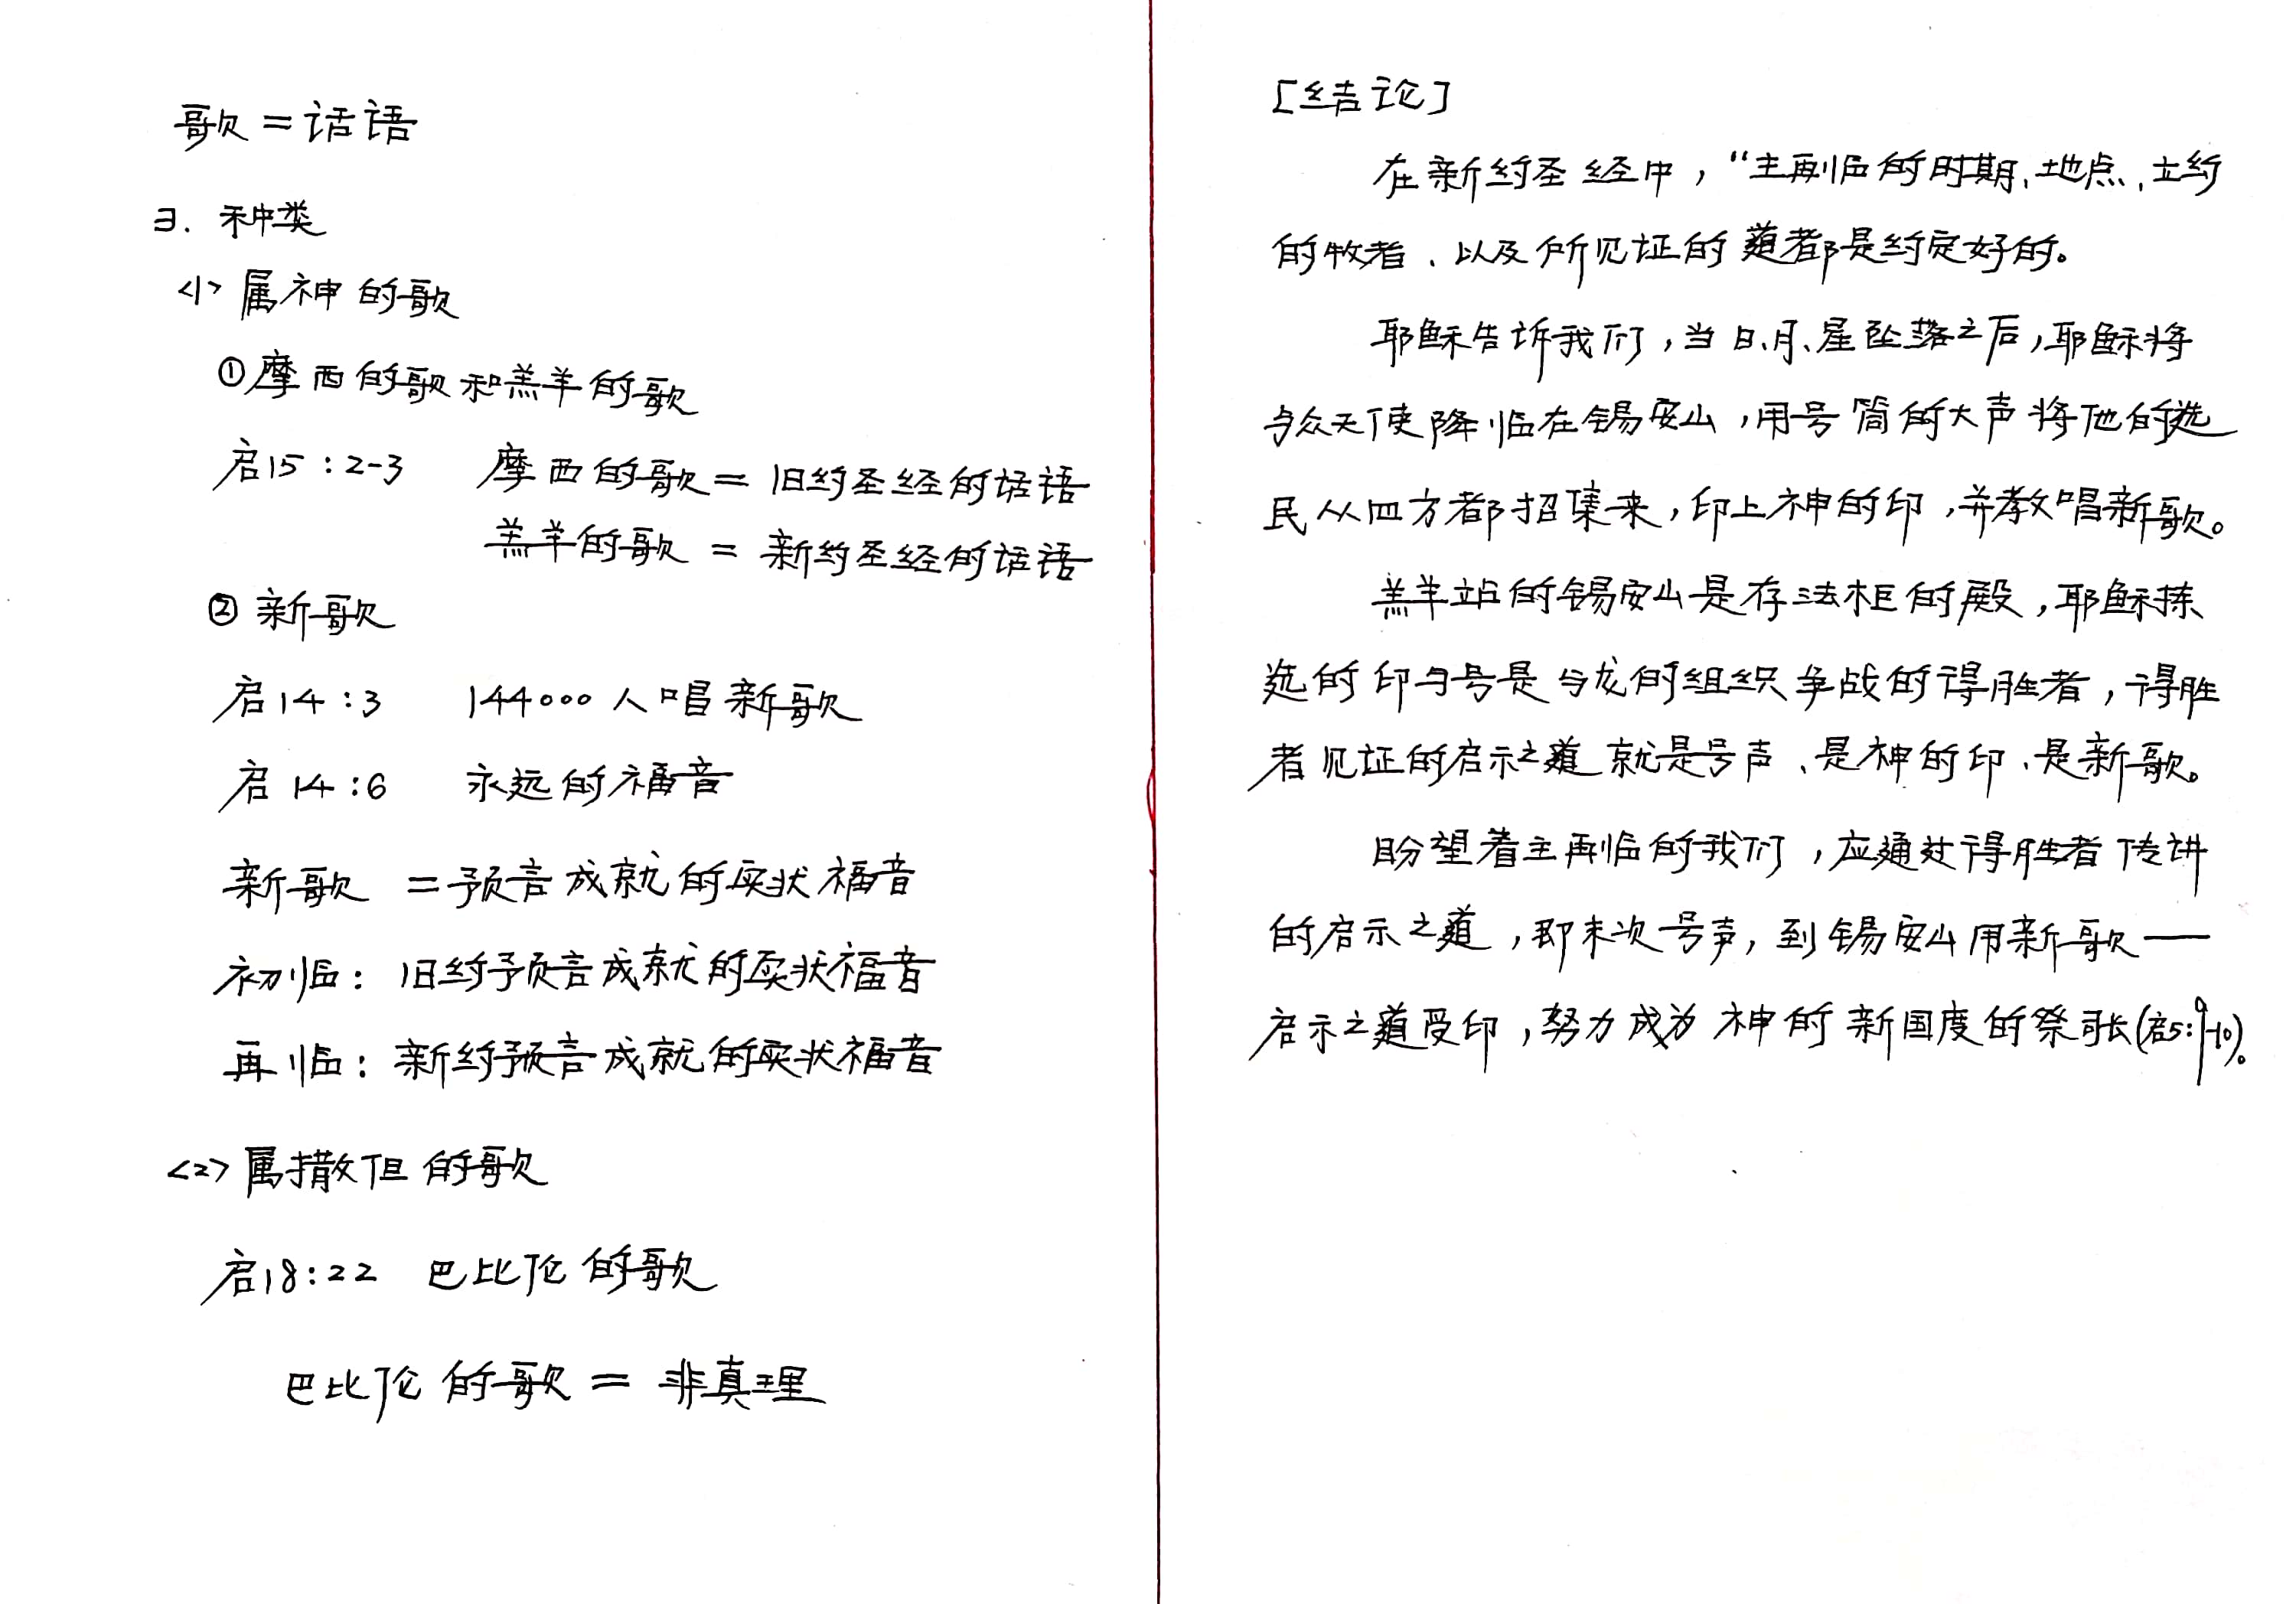 歌=话语
3. 种类
<1> 属神的歌
①摩西的歌和羔羊的歌
启15:2-3 摩西的歌=旧约圣经的话语
羔羊的歌=新约圣经的话语
② 新歌
启14:3 144000人唱新歌
启14:6 永远的福音
新歌 =预言成就的实状福音
初临: 旧约预言成就的实状福音
再临: 新约预言成就的实状福音
<2> 属撒但的歌
启18:22 巴比伦的歌
巴比伦的歌= 非真理
[结论]
在新约圣经中,“主再临的时期、地点、立约
的牧者、以及所见证的道都是约定好的。
耶稣告诉我们,当日、月、星坠落之后,耶稣将
与众天使降临在锡安山,用号筒的大声将他的选
民从四方都招集来,印上神的印,并教唱新歌。
羔羊站的锡安山是存法柜的殿,耶稣拣
选的印与号是与龙的组织争战的得胜者,得胜
者见证的启示之道就是号声、是神的印、是新歌。
盼望着主再临的我们,应通过得胜者传讲
的启示之道,即末次号声,到锡安山用新歌——
启示之道受印,努力成为神的新国度的祭司长(启5:9-10)。